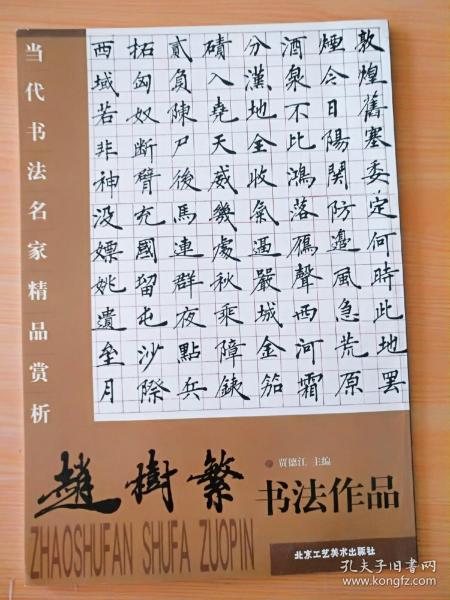 当代书法名家精品赏析
敦煌舊塞委定何時此地罷
煙今日陽関防邊風急荒原
酒泉不比鴻落雁聲西河霜
分漢地全收氣逼嚴城金笳
磧入堯天威幾處秋乘障鐵
貳負陳尸後馬連群夜點兵
拓匈奴斷臂充國留屯沙際
西域若非神没嫖姚遺壘月
趙樹繁
贾德江 主编
书法作品
ZHAOSHUFAN SHUFA ZUOPIN
北京工艺美术出版社
孔夫子旧书网
www.kongfz.com